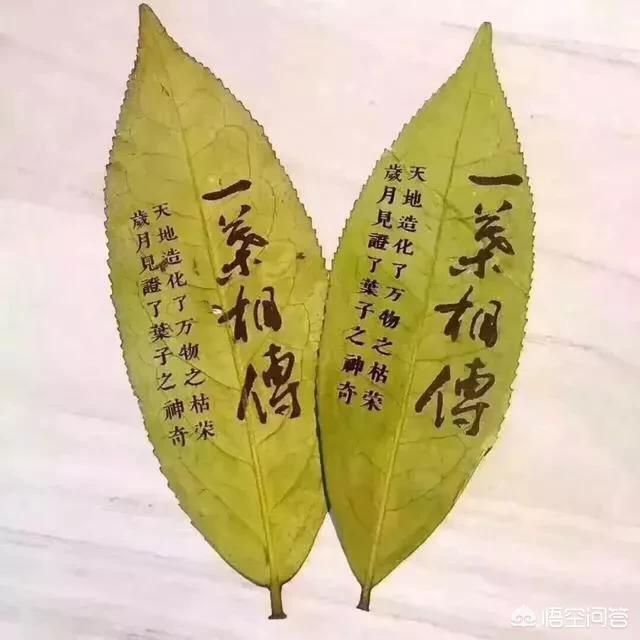 一葉相傳
天地造化了万物之枯荣
歲月見證了葉子之神奇
一葉相傳
天地造化了万物之枯荣
歲月見證了葉子之神奇
悟空问答